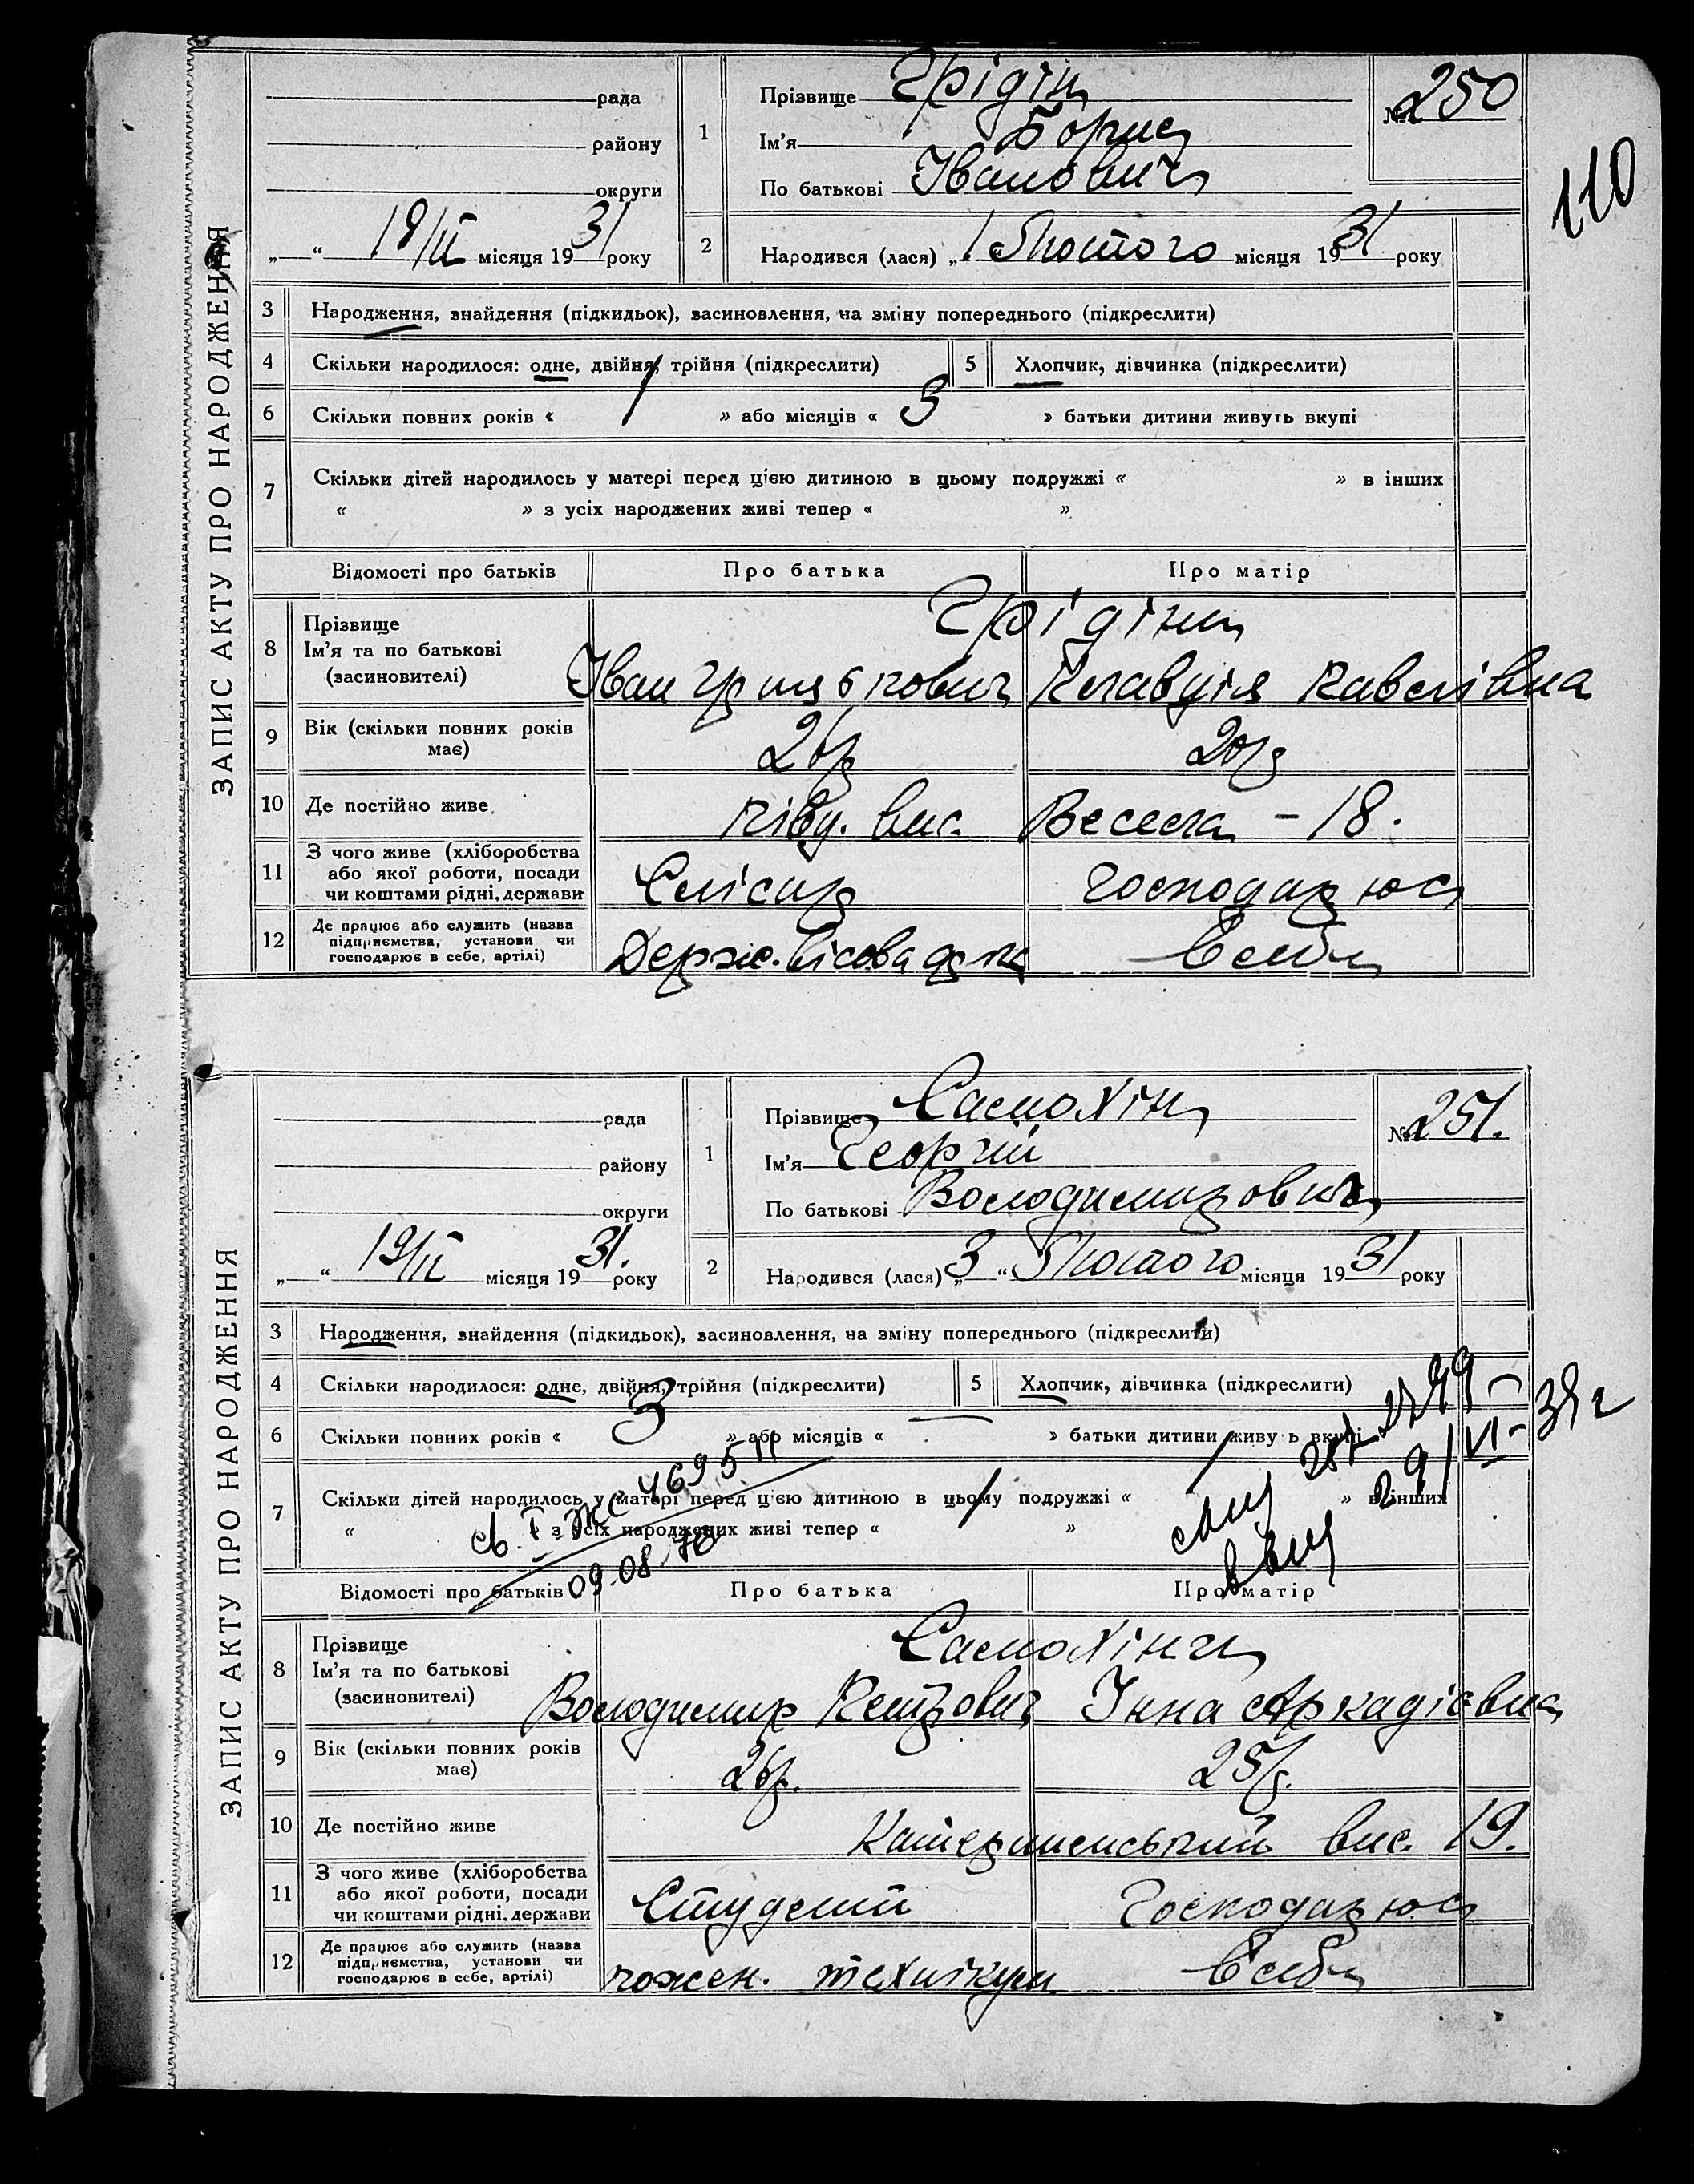 ЗАПИС АКТУ ПРО НАРОДЖЕННЯ
110
рада
району
округи
„ “ 18/ІІ місяця 1931 року
1 Прізвище Грідін
Ім'я Борис
По батькові Іванович
№ 250
2 Народився (лася) „1“ Лютого місяця 1931 року
3 Народження, знайдення (підкидьок), засиновлення, на зміну попереднього (підкреслити)
4 Скільки народилося: одне, двійня, трійня (підкреслити) 5 Хлопчик, дівчинка (підкреслити)
6 Скільки повних років « 1 » або місяців « 3 » батьки дитини живуть вкупі
7 Скільки дітей народилось у матері перед цією дитиною в цьому подружжі « » в інших
« » з усіх народжених живі тепер « »
Відомості про батьків Про батька Про матір
8 Прізвище
Ім'я та по батькові
(засиновителі)
Грідіни
Іван Клавдія Павлівна
9 Вік (скільки повних років має) 26р 20р
10 Де постійно живе Півд. вис. Весела - 18.
11 З чого живе (хліборобства або якої роботи, посади чи коштами рідні, держави Слісар Господарює
12 Де працює або служить (назва підприємства, установи чи господарює в себе, артілі) Держ. В себе
ЗАПИС АКТУ ПРО НАРОДЖЕННЯ
рада
району
округи
„ “ 19/ІІ місяця 1931. року
1 Прізвище Самохін
Ім'я Георгій
По батькові Володимирович
№ 251.
2 Народився (лася) „3“ Лютого місяця 1931 року
3 Народження, знайдення (підкидьок), засиновлення, на зміну попереднього (підкреслити)
4 Скільки народилося: одне, двійня, трійня (підкреслити) 5 Хлопчик, дівчинка (підкреслити)
6 Скільки повних років « 3 » або місяців « — » батьки дитини живуть вкупі
7 Скільки дітей народилось у матері перед цією дитиною в цьому подружжі « / » в інших
« » з усіх народжених живі тепер « / »
св. І-ЖС 469511
09.08.78
29/VI-39 г
Відомості про батьків Про батька Про матір
8 Прізвище
Ім'я та по батькові
(засиновителі)
Самохіни
Володимир Петрович Інна Аркадієвна
9 Вік (скільки повних років має) 26р. 25р.
10 Де постійно живе Катерининський вис. 19.
11 З чого живе (хліборобства або якої роботи, посади чи коштами рідні, держави Студент Господарює
12 Де працює або служить (назва підприємства, установи чи господарює в себе, артілі) пожеж. технікум В себе